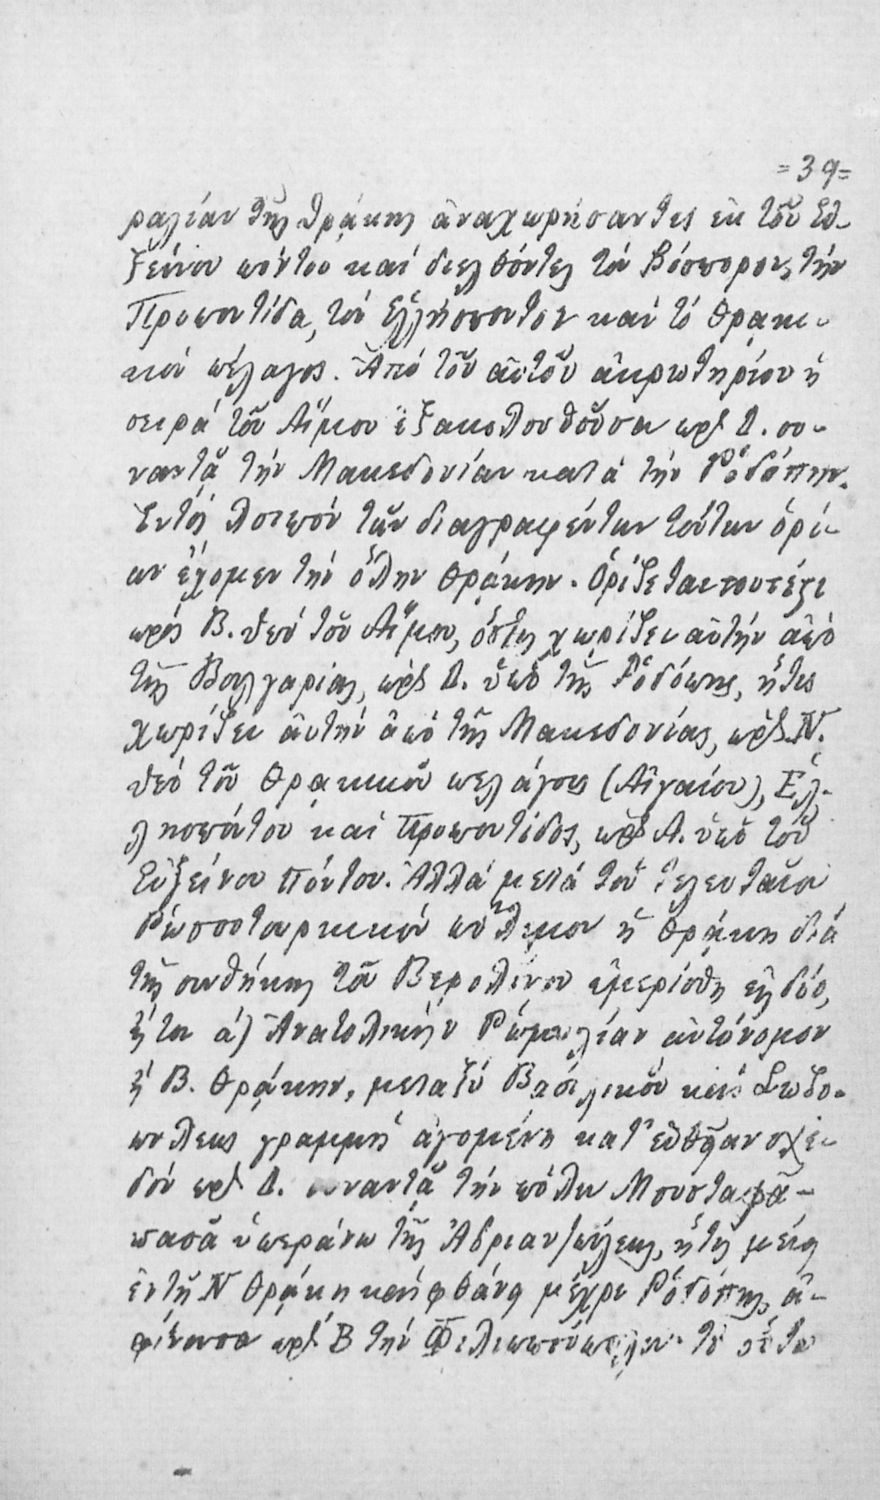 =39=
ραλίαν τῆς Θράκης ἀναχωρήσαντες ἐκ τοῦ Εὐ-
ξείνου πόντου καί διελθόντες τόν Βόσπορον, τήν
Προποντίδα, τόν Ἑλλήσποντον καί τό Θρακι-
κόν πέλαγος. Ἀπό τοῦ αὐτοῦ ἀκρωτηρίου ἡ
σειρά τοῦ Αἵμου ἐξακολουθοῦσα πρός Δ. συ-
ναντᾶ τήν Μακεδονίαν κατά τήν Ῥοδόπην.
Ἐντός λοιπόν τῶν διαγραφέντων τούτων ὁρί-
ων ἔχομεν τήν ὅλην Θράκην. Ὁρίζεται τουτέστι
πρός Β. ὑπό τοῦ Αἵμου, ὅστις χωρίζει αὐτήν ἀπό
τῆς Βουλγαρίας, πρός Δ. ὑπό τῆς Ῥοδόπης, ἥτις
χωρίζει αὐτήν ἀπό τῆς Μακεδονίας, πρός Ν.
ὑπό τοῦ Θρακικοῦ πελάγους (Αἰγαίου), Ἑλ-
λησπόντου καί Προποντίδος, πρός Α. ὑπό τοῦ
Εὐξείνου Πόντου. Ἀλλά μετά τόν τελευταῖον
Ῥωσσοτουρκικόν πόλεμον ἡ Θράκη διά
τῆς συνθήκης τοῦ Βερολίνου ἐμερίσθη εἰς δύο,
ἤτοι ά) Ἀνατολικήν Ῥωμυλίαν αὐτόνομον
ἤ Β. Θράκην, μεταξύ Βασιλικοῦ καί Σωζο-
πόλεως γραμμή ἀγομένη κατ' εὐθεῖαν σχε-
δόν πρός Δ. συναντᾶ τήν πόλιν Μουσταφᾶ-
πασᾶ ὑπεράνω τῆς Ἀδριανουπόλεως, ἥτις μένει
ἐν τῇ Ν Θράκῃ καί φθάνει μέχρι Ῥοδόπης, ἀ-
φίνουσα πρός Β τήν Φιλιππούπολιν.